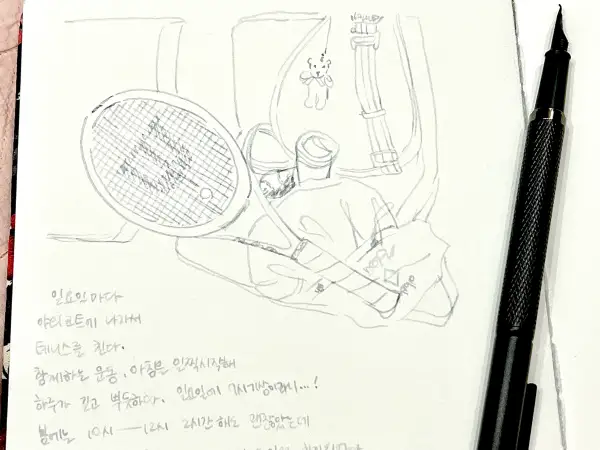 일요일마다
야외코트에 나가서
테니스를 친다.
함께하는 운동. 아침을 일찍시작해
하루가 길고 뿌듯하다. 일요일에 7시기상이라니...!
봄에는 10시 — 12시 2시간 해도 괜찮았는데